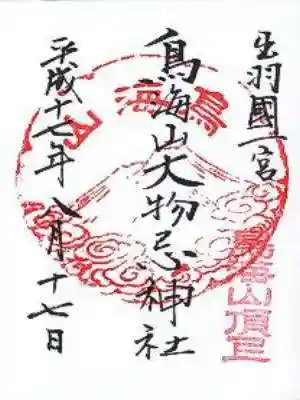 出羽國一宮
鳥海山大物忌神社
平成十七年八月十七日
鳥海山
山頂